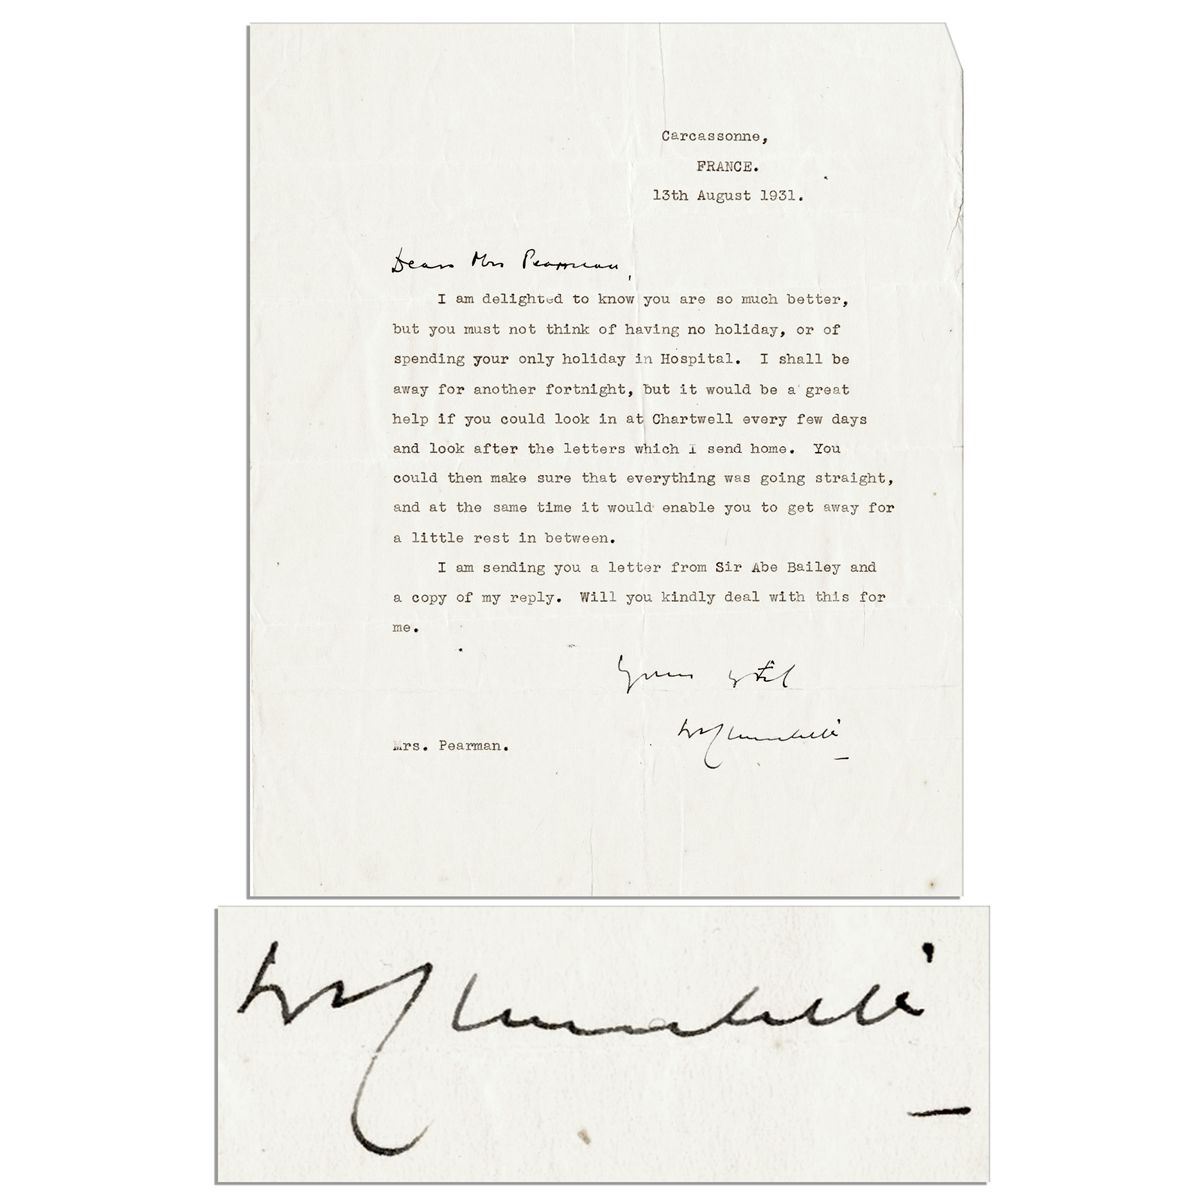 Carcassonne,
FRANCE.
13th August 1931.
Dear Mrs Pearman,
I am delighted to know you are so much better,
but you must not think of having no holiday, or of
spending your only holiday in Hospital. I shall be
away for another fortnight, but it would be a great
help if you could look in at Chartwell every few days
and look after the letters which I send home. You
could then make sure that everything was going straight,
and at the same time it would enable you to get away for
a little rest in between.
I am sending you a letter from Sir Abe Bailey and
a copy of my reply. Will you kindly deal with this for
me.
Yours
W S Churchill
Mrs. Pearman.
W S Churchill